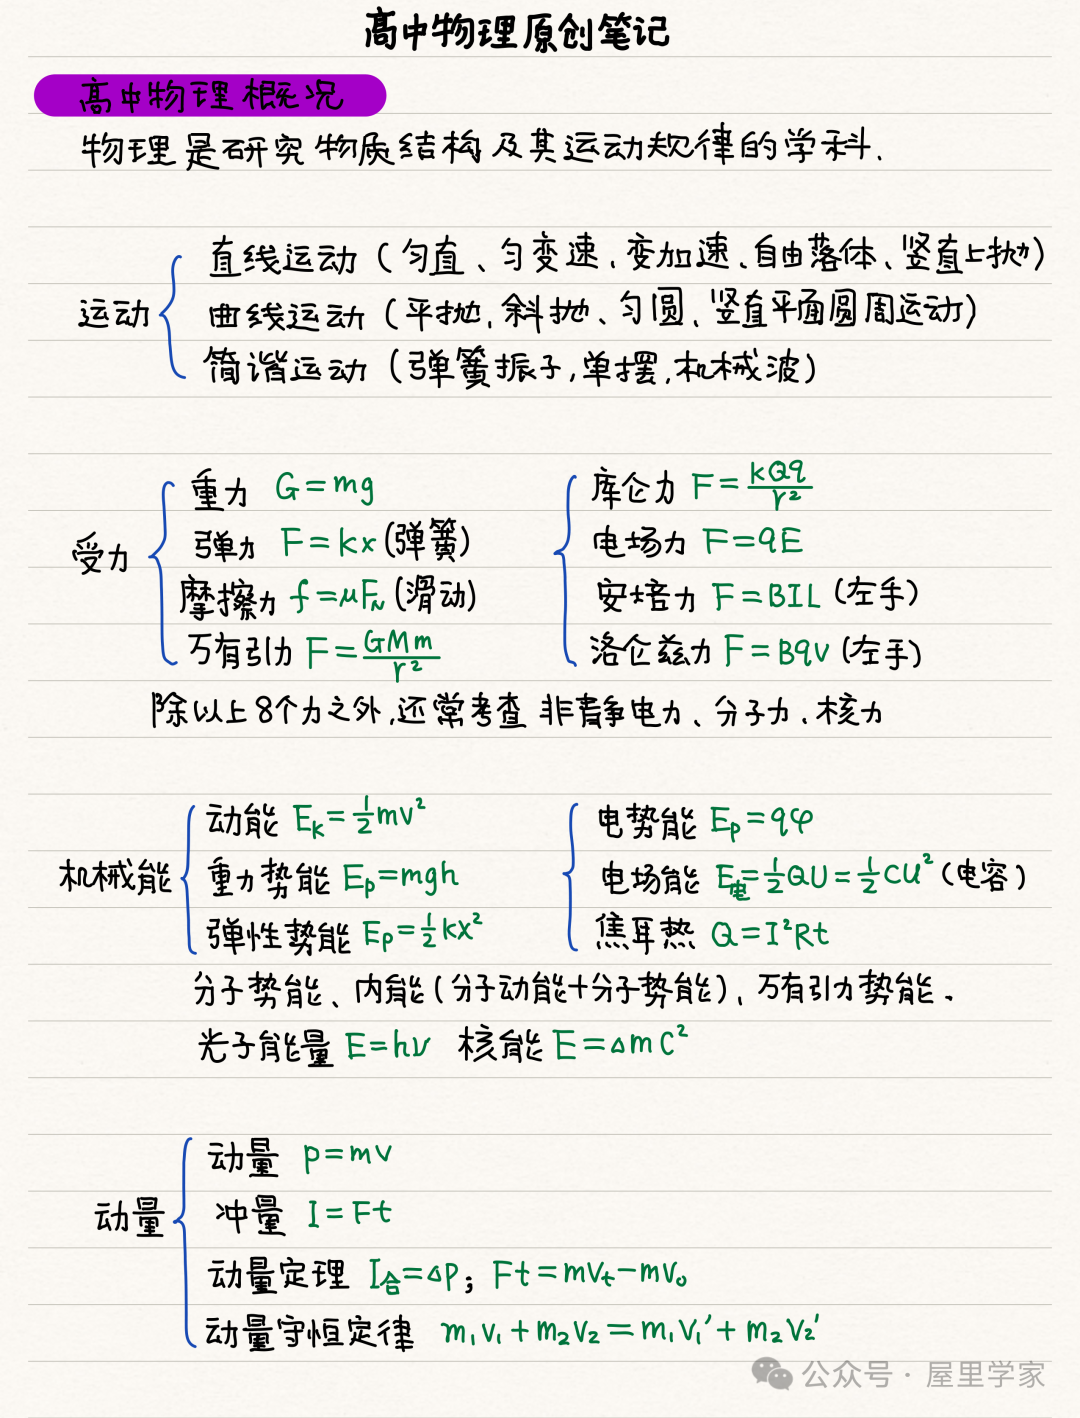 高中物理原创笔记
高中物理概况
物理是研究物质结构及其运动规律的学科.
运动
直线运动（匀直、匀变速、变加速、自由落体、竖直上抛）
曲线运动（平抛、斜抛、匀圆、竖直平面圆周运动）
简谐运动（弹簧振子,单摆,机械波）
受力
重力 G=mg
弹力 F=kx(弹簧)
摩擦力 f=μF_N(滑动)
万有引力 F=GMm/r²
库仑力 F=kQq/r²
电场力 F=qE
安培力 F=BIL（左手）
洛仑兹力 F=Bqv（左手）
除以上8个力之外,还常考查 非静电力、分子力、核力
机械能
动能 E_k=½mv²
重力势能 E_p=mgh
弹性势能 E_p=½kx²
电势能 E_p=qφ
电场能 E_电=½QU=½CU²（电容）
焦耳热 Q=I²Rt
分子势能、内能（分子动能+分子势能）、万有引力势能.
光子能量 E=hν 核能 E=ΔmC²
动量
动量 p=mv
冲量 I=Ft
动量定理 I_合=Δp；Ft=mv_t-mv₀
动量守恒定律 m₁v₁+m₂v₂=m₁v₁′+m₂v₂′
公众号·屋里学家